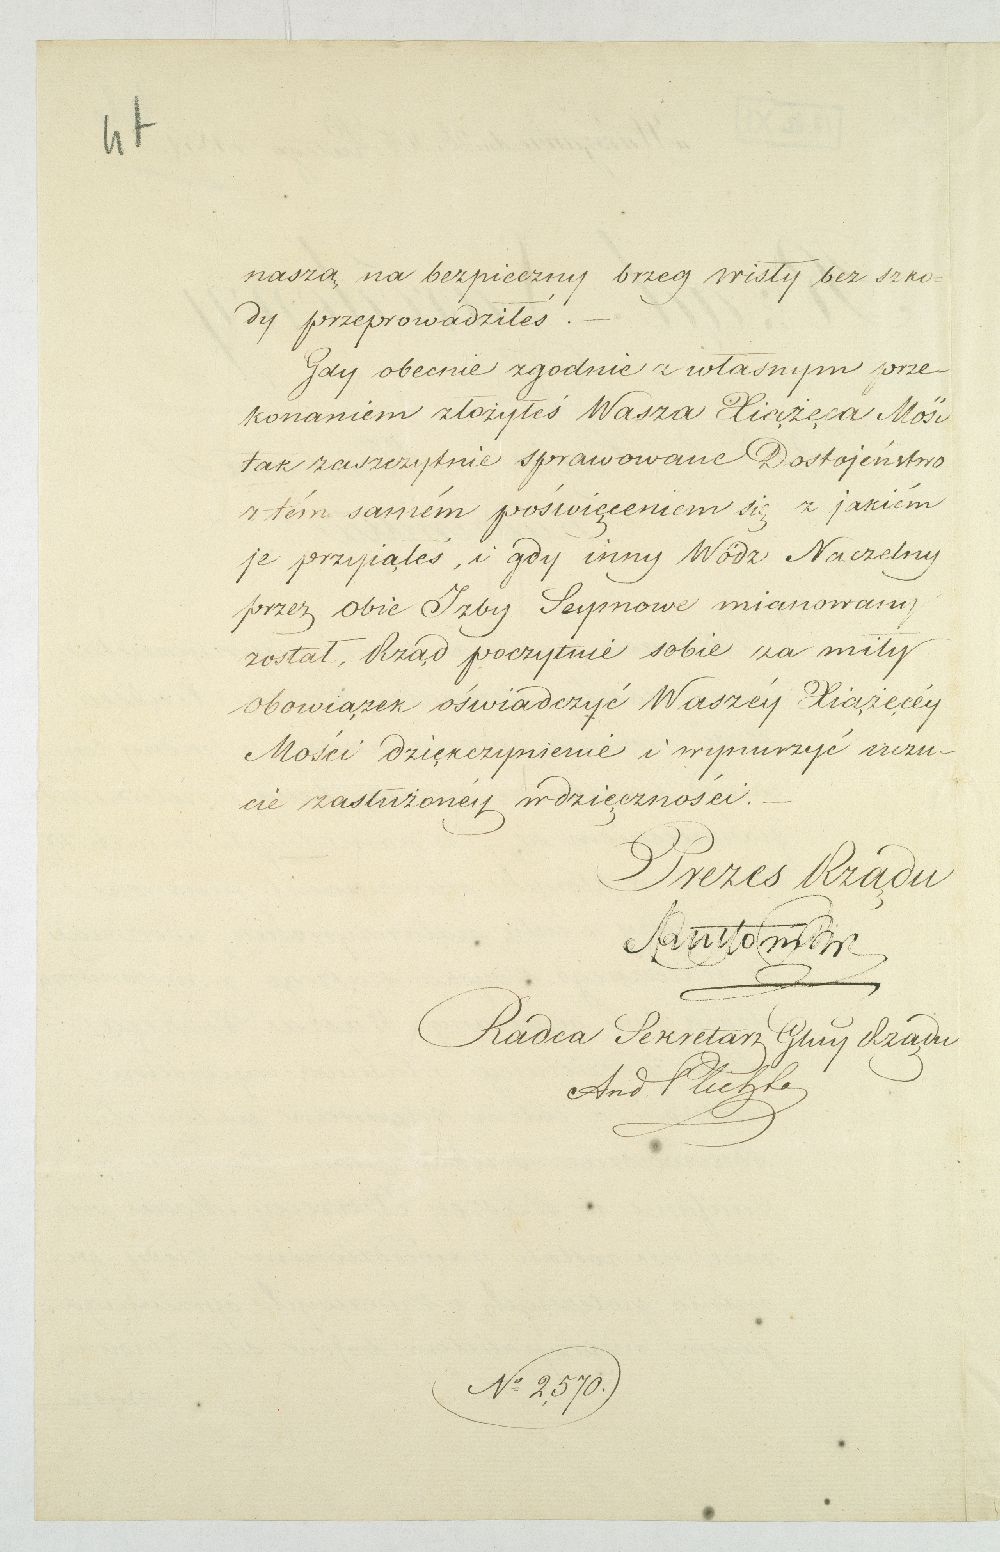 44
naszą na bezpieczny brzeg Wisły bez szko-
dy przeprowadziłeś. —
Gdy obecnie zgodnie z własnym prze-
konaniem złożyłeś Wasza Xiążęca Mość
tak zaszczytnie sprawowane Dostojeństwo
z tém samém poświęceniem się z jakiém
je przyiąłeś, i gdy inny Wódz Naczelny
przez obie Izby Seymowe mianowany
został, Rząd poczytuie sobie za miły
obowiązek oświadczyć Waszéy Xiążęcéy
Mości dziękczynienie i wynurzyć uczu-
cie zasłużonéy wdzięczności. —
Prezes Rządu
Radca Sekretarz Glny Rządu
And Plichta
No 2,570.